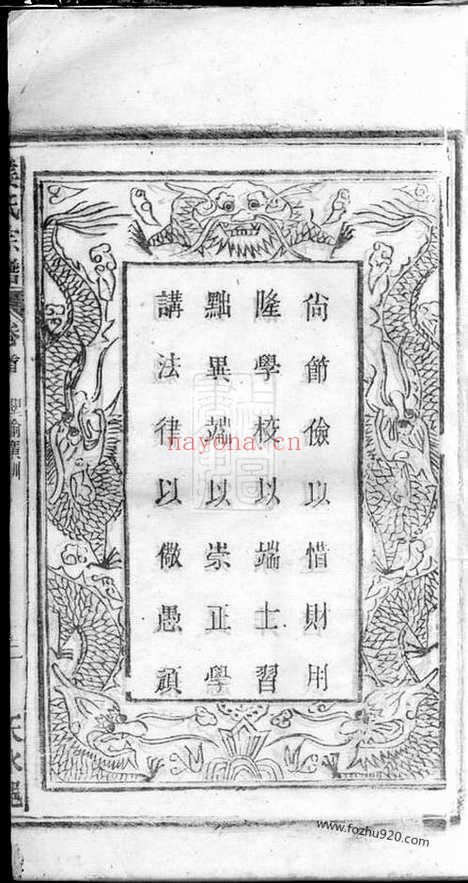 尙節儉以惜財用
隆學校以端士習
黜異端以崇正學
講法律以儆愚頑
氏宗譜
卷首
聖諭廣訓
nayona.cn
www.fozhu920.com